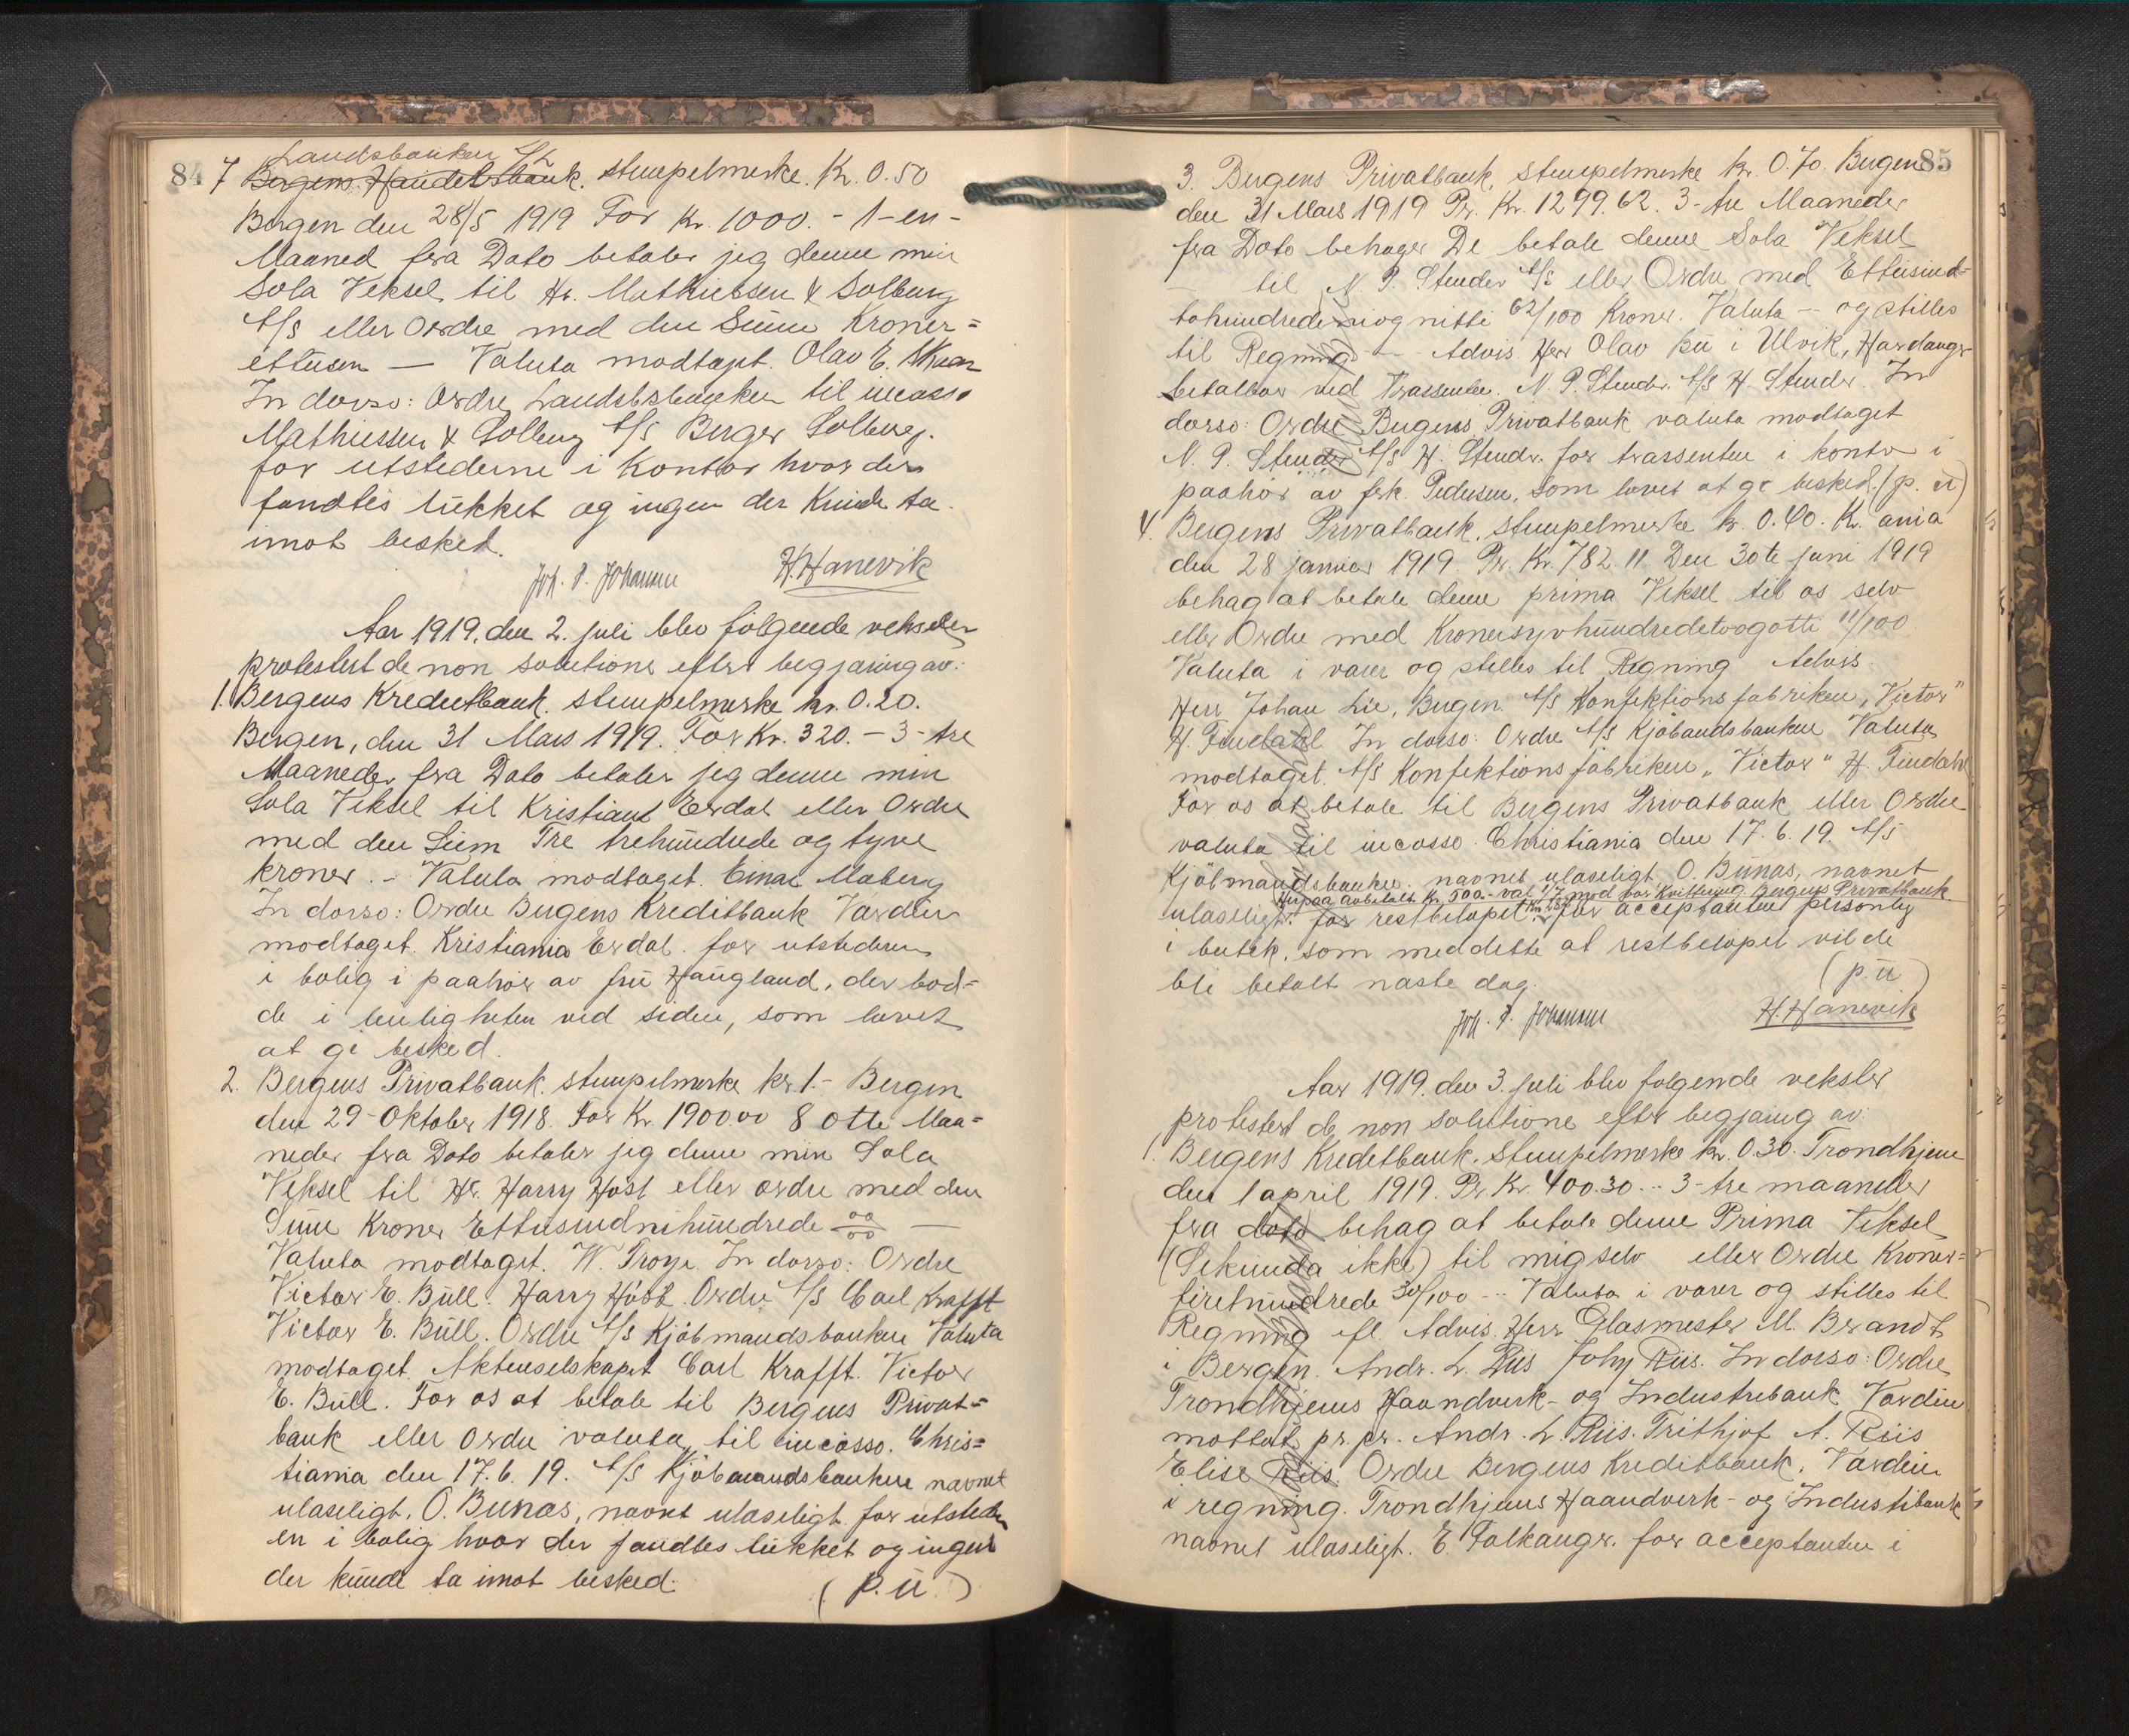 84
Landsbanken A/S
7 Bergens Handelsbank. stempelmerke. Kr. 0.50
Bergen den 28/5 1919 For Kr. 1000. - 1-en-
Maaned fra Dato betaler jeg denne min
Sola Veksel til Hr. Mathiessen & Solberg
A/S eller Ordre med den Summ Kroner=
ettusen — Valuta modtaget. Olav E.
In dorso: Ordre Landsbanken til incasso
Mathiessen & Solberg A/S Birger Solberg.
for utstederne i Kontor hvor der
fandtes lukket og ingen der Kunde ta
imot besked.
Joh. P. Johannes H. Hanevik
Aar 1919. den 2. juli blev følgende veksler
protestert de non solutione efter begjæring av:
1. Bergens Kreditbank. stempelmerke kr. 0.20.
Bergen, den 31 Mars 1919. For Kr. 320. - 3 - tre
Maaneder fra Dato betaler jeg denne min
Sola Veksel til Kristiana Erdal eller Ordre
med den Sum Tre trehundrede og tyve
kroner. - Valuta modtaget. Einar Moberg
In dorso: Ordre Bergens Kreditbank Værdien
modtaget. Kristiania Erdal. for utstederen
i bolig i paahør av fru Haugland, der bod=
de i leiligheten ved siden, som lovet
at gi besked.
2. Bergens Privatbank. stempelmerke kr. 1.- Bergen
den 29-Oktober 1918. For Kr. 1900.00 8 otte Maa=
neder fra Dato betaler jeg denne min Sola
Veksel til Hr. Harry Høst eller ordre med den
Sum Kroner Ettusindnihundrede 00/00 —
Valuta modtaget. W. Troye. In dorso: Ordre
Victor E. Büll. Harry Høst. Ordre A/S Carl Krafft
Victor E. Büll. Ordre A/S Kjøbmandsbanken Valuta
modtaget. Aktieselskapet Carl Krafft. Victor
E. Büll. For os at betale til Bergens Privat=
bank eller ordre valuta til incasso. Chris=
tiania den 17.6.19. A/S Kjøbmandsbanken navnet
ulæseligt. O. Bunæs, navnet ulæseligt. for utsteder
en i bolig hvor der fandtes lukket og ingen
der kunde ta imot besked.
(p.u.)
85
3. Bergens Privatbank, stempelmerke kr. 0.70. Bergen
den 31 Mars 1919 Pr. Kr. 1299.62. 3-tre Maaneder
fra Dato behager De betale denne Sola Veksel
til N. P. Stender A/S eller Ordre med Ettusind-
tohundredeniognitti 62/100 Kroner. Valuta - og stilles
til Regning — Advis. Herr Olav Bu i Ulvik, Hardanger
betalbar ved Trassenten. N. P. Stender A/S H. Stender. In
dorso: Ordre Bergens Privatbank valuta modtaget
N. P. Stender A/S H. Stender. for trassenten i kontor i
paahør av frk. Pedersen, som lovet at gi besked. (p. u)
4. Bergens Privatbank. stempelmerke kr. 0.40. K. ania
den 28 januar 1919. Pr. Kr. 782.11 Den 30te juni 1919
behag at betale denne prima Veksel til os selv
eller Ordre med Kronersyvhundredetoogotti 11/100
Valuta i varer og stilles til Regning Advis.
Herr Johan Lie, Bergen. A/S Konfektionsfabriken „Victor"
H. Findahl In dorso: Ordre A/S Kjøbmandsbanken Valuta
modtaget. A/S Konfektionsfabriken „Victor" H. Findahl
For os at betale til Bergens Privatbank eller Ordre
valuta til incasso. Christiania den 17.6.19. A/S
Kjøbmandsbanken. navnet ulæseligt O. Bunæs, navnet
Herpaa avbetalt Kr. 500.- val. 1/7 mod vor Kvittering. Bergens Privatbank.
ulæseligt. for restbeløpet for acceptanten personlig
i butik, som meddelte at restbeløpet vilde
bli betalt næste dag.
(p.u)
Joh. P. Johannes H. Hanevik
Aar 1919. den 3. juli blev følgende veksler
protestert de non solutione efter begjæring av:
1. Bergens Kreditbank. Stempelmerke kr. 0.30. Trondhjem
den 1 april 1919. Pr. Kr. 400.30 -- 3-tre maaneder
fra dato behag at betale denne Prima Veksel
(Sekunda ikke) til mig selv eller Ordre Kroner=
firehundrede 30/100 -- Valuta i varer og stilles til
Regning efl. Advis. Herr Glasmester M. Brandt
i Bergen. Andr. L. Riis Johs Riis. In dorso: Ordre
Trondhjems Haandverk- og Industribank Værdien
mottat pr. pr. Andr. L. Riis. Frithjof A. Riis
Elise Riis. Ordre Bergens Kreditbank. Værdien
i regning. Trondhjems Haandverk- og Industribank
navnet ulæseligt. E. Falkanger. for acceptanten i